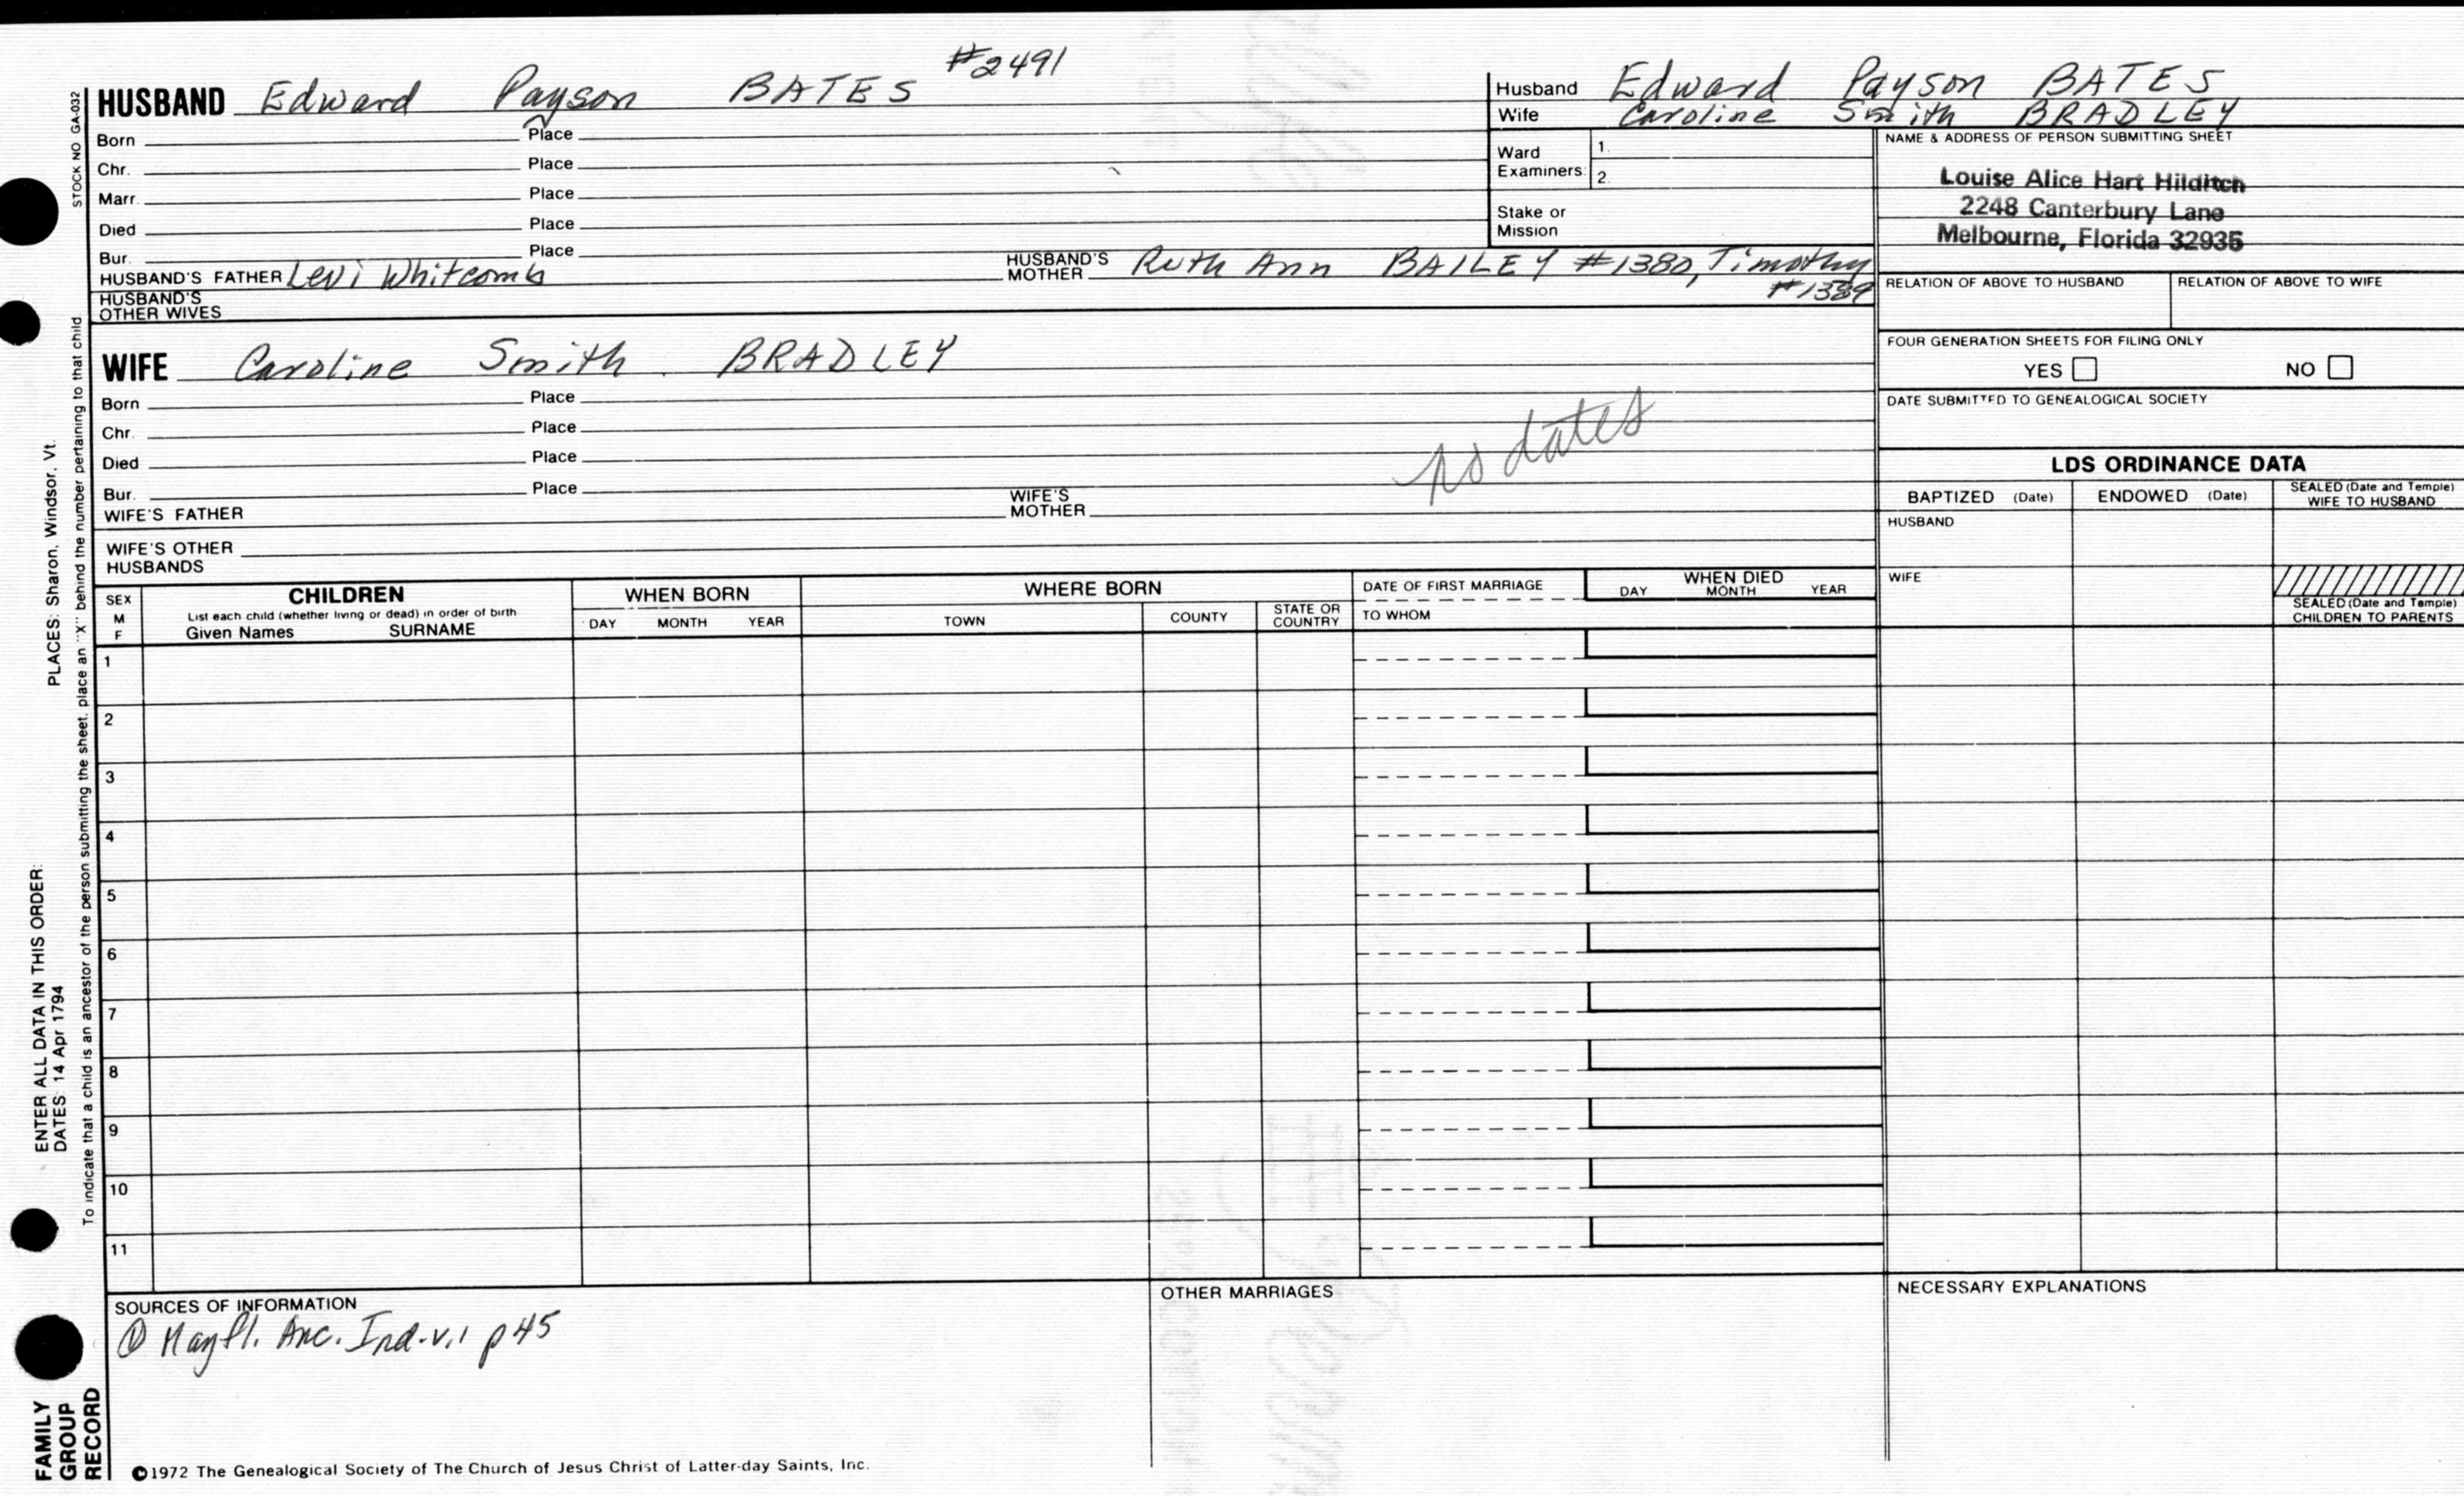 #2491
HUSBAND Edward Payson BATES
Born Place
Chr. Place
Marr. Place
Died Place
Bur. Place
HUSBAND'S FATHER Levi Whitcomb HUSBAND'S MOTHER Ruth Ann BAILEY #1380, Timothy
#1389
HUSBAND'S OTHER WIVES
Husband Edward Payson BATES
Wife Caroline Smith BRADLEY
Ward Examiners: 1.
2.
Stake or Mission
NAME & ADDRESS OF PERSON SUBMITTING SHEET
Louise Alice Hart Hilditch
2248 Canterbury Lane
Melbourne, Florida 32935
RELATION OF ABOVE TO HUSBAND RELATION OF ABOVE TO WIFE
FOUR GENERATION SHEETS FOR FILING ONLY
YES NO
DATE SUBMITTED TO GENEALOGICAL SOCIETY
WIFE Caroline Smith BRADLEY
Born Place
Chr. Place
Died Place
Bur. Place
no dates
WIFE'S FATHER WIFE'S MOTHER
WIFE'S OTHER HUSBANDS
LDS ORDINANCE DATA
BAPTIZED (Date) ENDOWED (Date) SEALED (Date and Temple) WIFE TO HUSBAND
HUSBAND
WIFE
SEALED (Date and Temple) CHILDREN TO PARENTS
SEX M F
CHILDREN
List each child (whether living or dead) in order of birth
Given Names SURNAME
WHEN BORN
DAY MONTH YEAR
WHERE BORN
TOWN COUNTY STATE OR COUNTRY
DATE OF FIRST MARRIAGE
TO WHOM
WHEN DIED
DAY MONTH YEAR
1
2
3
4
5
6
7
8
9
10
11
SOURCES OF INFORMATION
① Mayfl. Anc. Ind. v.1 p45
OTHER MARRIAGES
NECESSARY EXPLANATIONS
©1972 The Genealogical Society of The Church of Jesus Christ of Latter-day Saints, Inc.
STOCK NO GA-032
To indicate that a child is an ancestor of the person submitting the sheet, place an "X" behind the number pertaining to that child.
ENTER ALL DATA IN THIS ORDER:
DATES: 14 Apr 1794 PLACES: Sharon, Windsor, Vt.
FAMILY
GROUP
RECORD